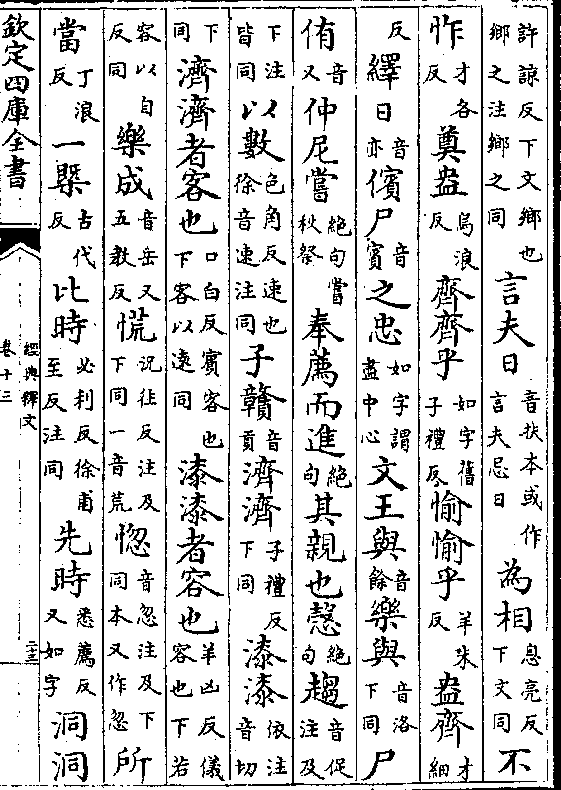 許諒反下文鄉也鄉之注鄉之同言夫日音扶本或作言夫忌日為相息亮反下文同不
怍才各反奠盎烏浪反齊齊乎如字舊子禮反愉愉乎羊朱反盎齊才細
反繹日音亦儐尸音賓之忠如字謂盡中心文王與音餘樂與音洛下同尸
侑音又仲尼嘗絶句嘗秋祭奉薦而進絶句其親也慤絶句趨音促注及
下注皆同以數色角反速也徐音速注同子贛音貢濟濟子禮反下同漆漆依注音切
下同濟濟者客也口白反賓客也下客以遠同漆漆者容也羊凶反儀容也下若
容以自反同樂成音岳又五教反慌况往反注及下同一音荒惚音忽注及下同本又作忽所
當丁浪反一槩古代反比時必利反徐甫至反注同先時悉薦反又如字洞洞
欽定四庫全書
經典釋文
卷十三
二十三